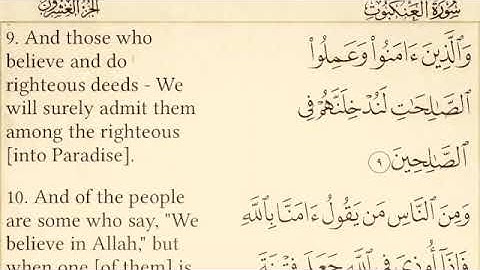 الجزء العشرون
سورة العنكبوت
9. And those who
believe and do
righteous deeds - We
will surely admit them
among the righteous
[into Paradise].
وَٱلَّذِينَ ءَامَنُوا۟ وَعَمِلُوا۟
ٱلصَّـٰلِحَـٰتِ لَنُدْخِلَنَّهُمْ فِى
ٱلصَّـٰلِحِينَ ٩
10. And of the people
are some who say, "We
believe in Allah," but
when one [of them] is
وَمِنَ ٱلنَّاسِ مَن يَقُولُ ءَامَنَّا بِٱللَّهِ
فَإِذَآ أُوذِىَ فِى ٱللَّهِ جَعَلَ فِتْنَةَ